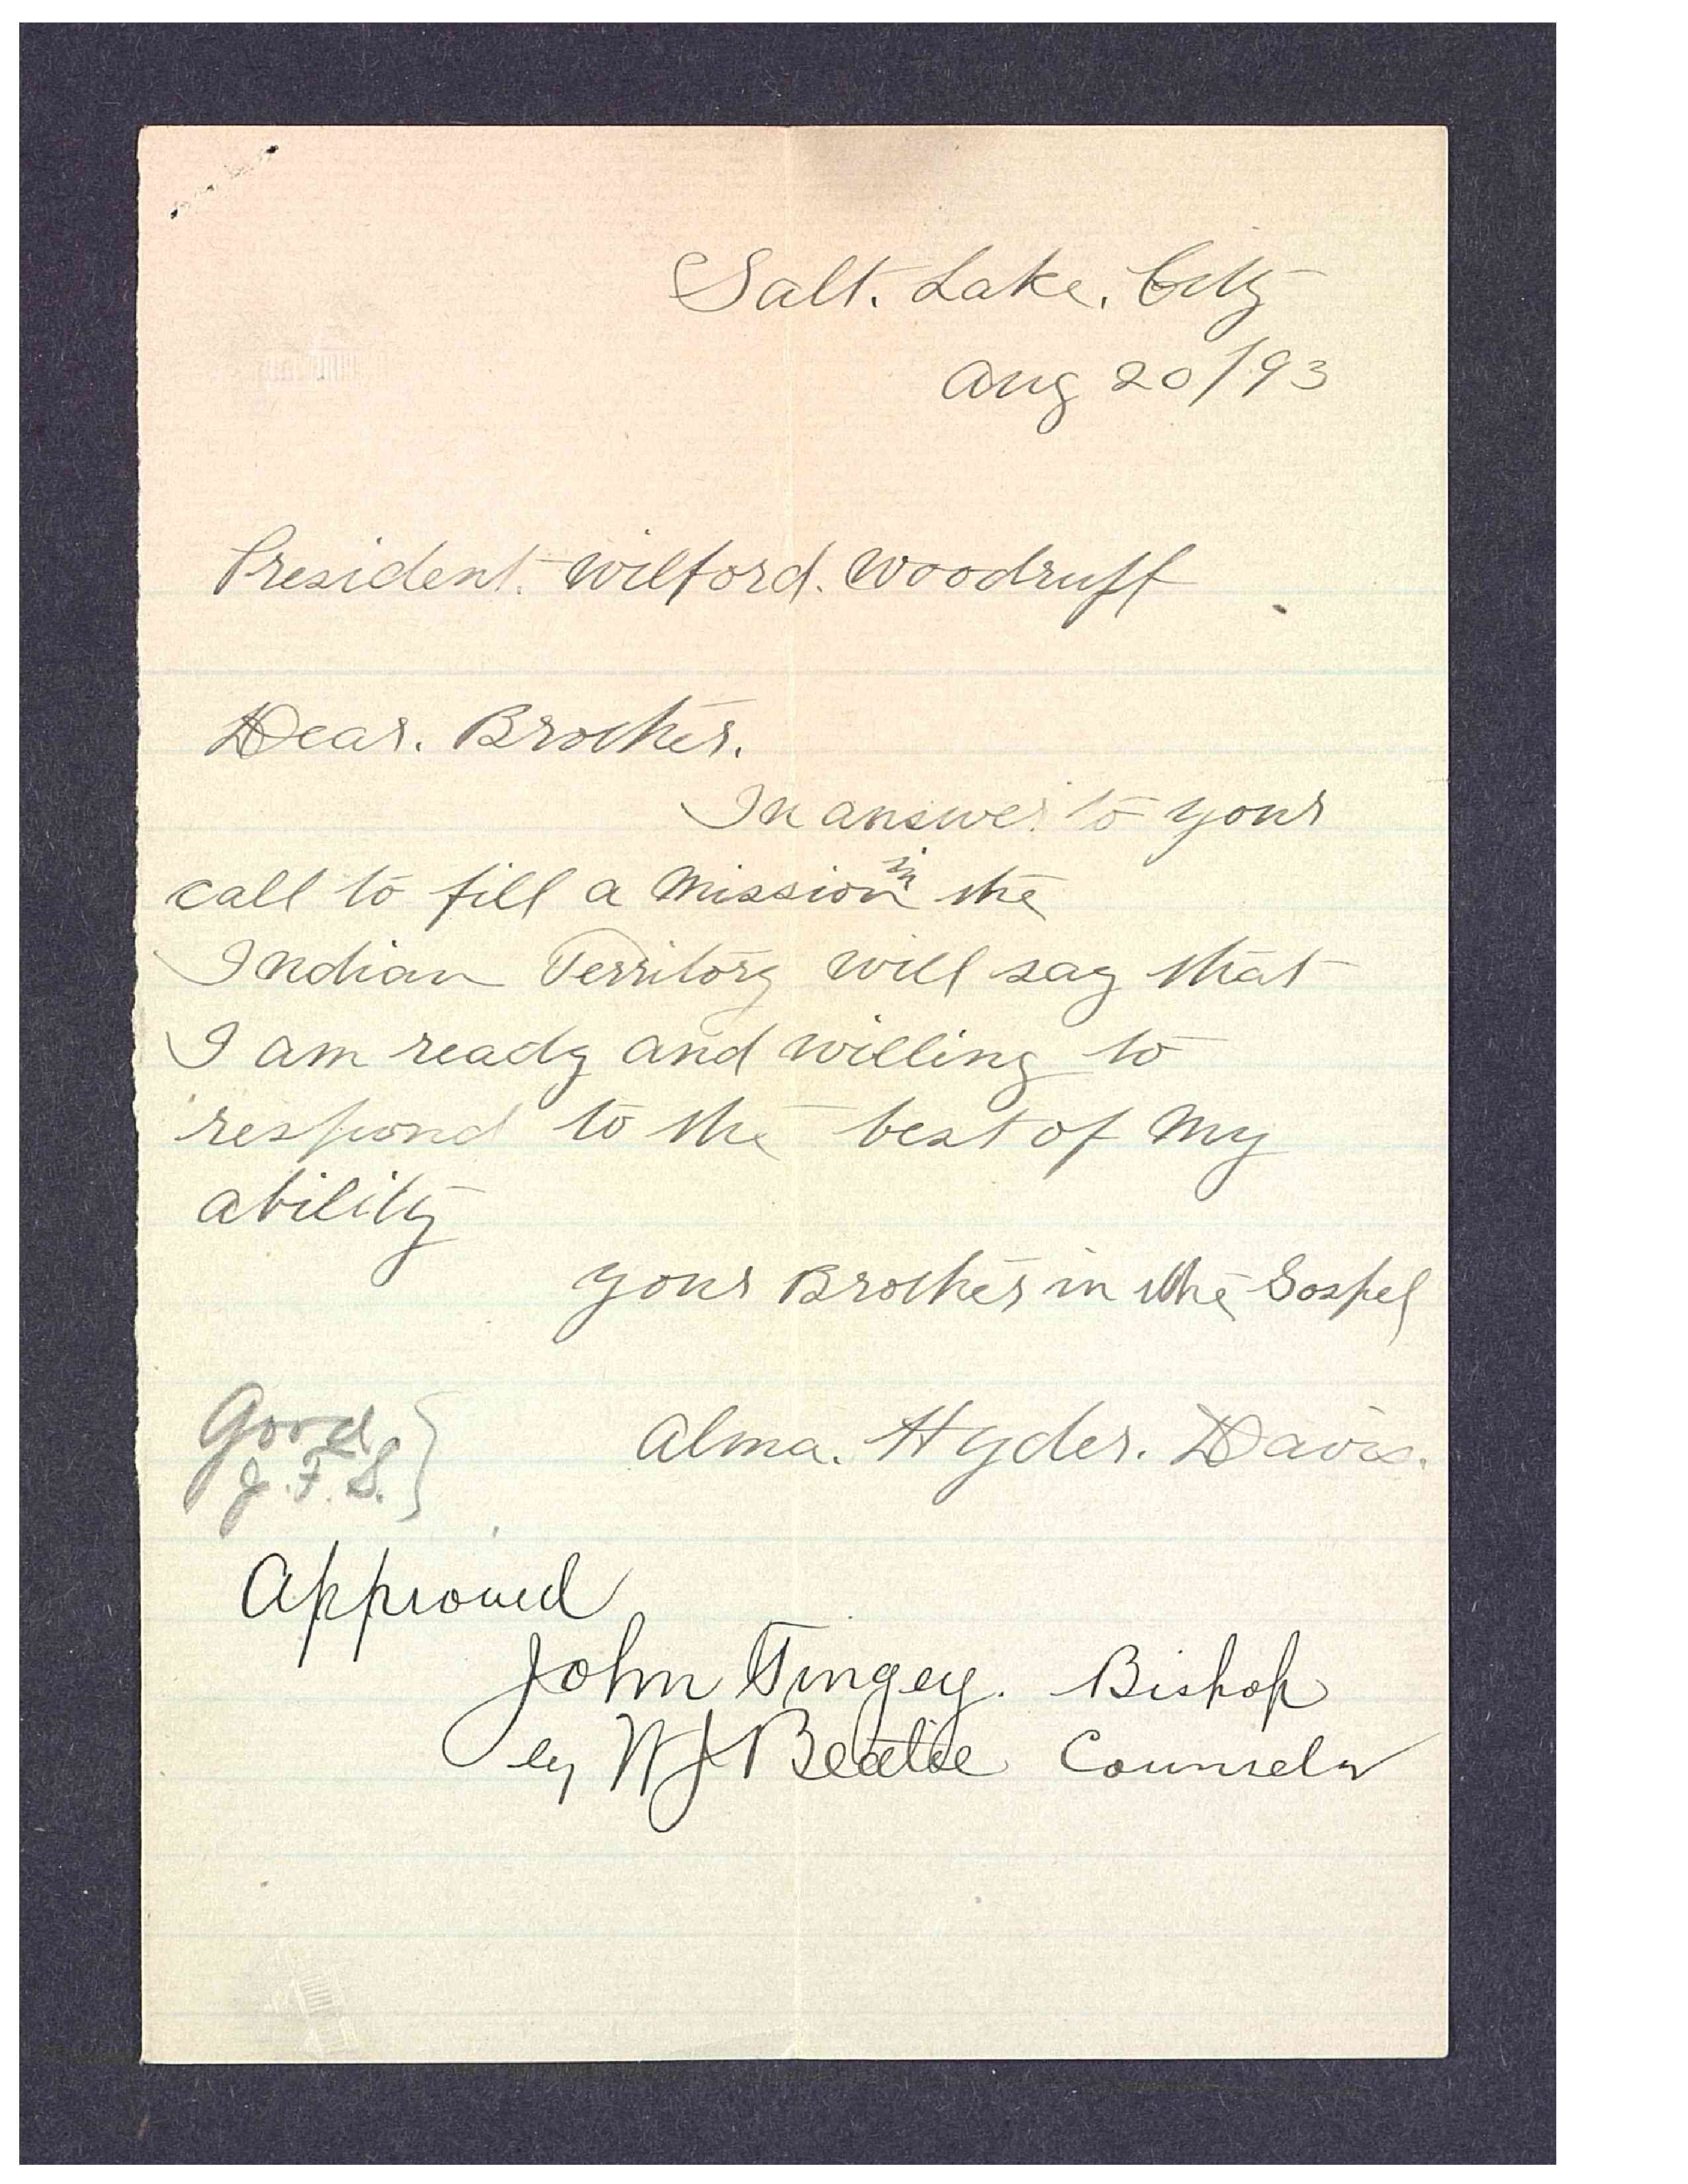 Salt. Lake. City
Aug 20/93
President. Wilford. Woodruff
Dear. Brother.
In answer to your
call to fill a Mission in the
Indian Territory will say that
I am ready and willing to
respond to the best of My
ability
your Brother in the Gospel
Alma. Hyder. Davis.
Good
J. F. S.
Approved
John Tingey. Bishop
by W J Beatie Counselor